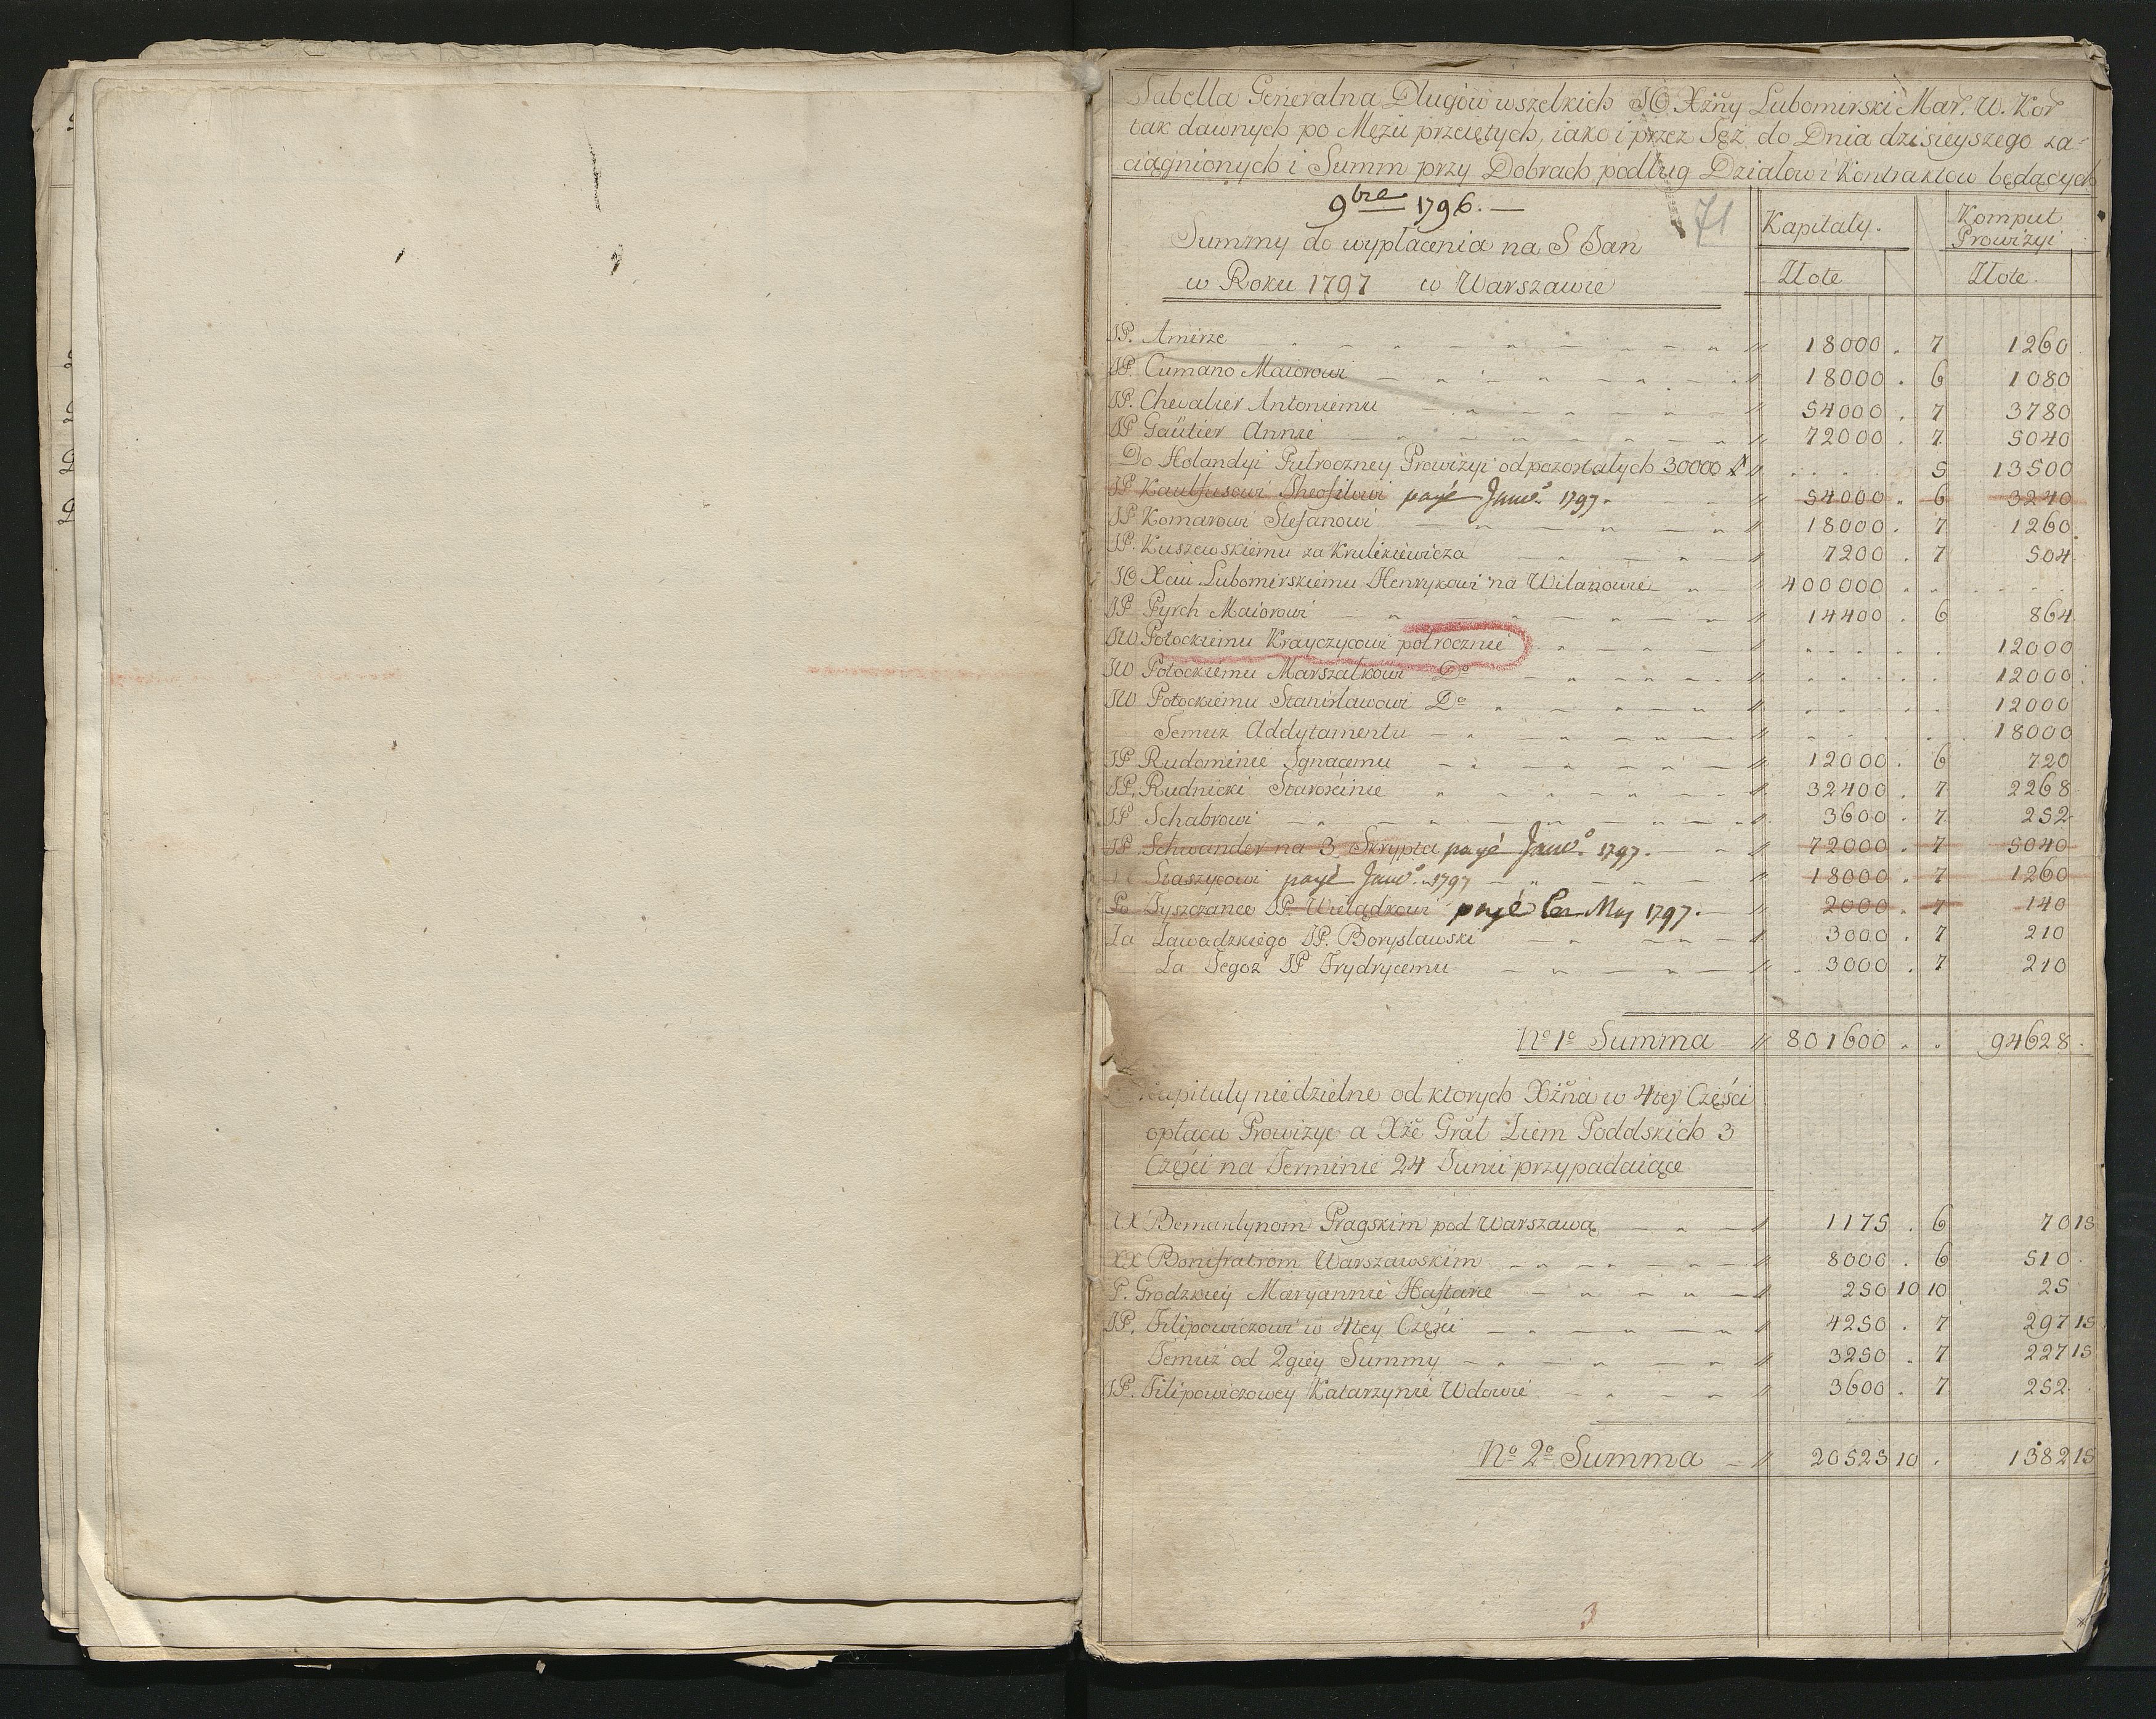 Tabella Generalna Długów wszelkich JO Xżny Lubomirski Mar. W. Kor
tak dawnych po Mężu przeiętych, iako i przez Tęż do Dnia dzisieyszego za-
ciągnionych i Summ przy Dobrach podług Działow i Kontraktow będących
9bre 1796. —
71
Kapitały.
Komput
Prowizyi
Summy do wypłacenia na S Jan
w Roku 1797 w Warszawie
Złote
Złote.
JP. Amirze 18000 . 7 1260
JP. Cumano Maiorowi 18000 . 6 1080
JP. Chevalier Antoniemu 54000 . 7 3780
JP Gautier Annie 72000 . 7 5040
Do Holandyi Putroczney Prowizyi od pozostałych 30000 5 13500
JP Kaulfusowi Theofilowi payé Janv. 1797. 54000 . 6 3240
JP Komarowi Stefanowi 18000 . 7 1260
JP. Kuszewskiemu za Krulikiewicza 7200 . 7 504
JO Xciu Lubomirskiemu Henrykowi na Wilanowie 400000
JP Pyrch Maiorowi 14400 . 6 864
JW Potockiemu Krayczycowi połrocznie 12000
JW Potockiemu Marszałkowi Do 12000
JW Potockiemu Stanisławowi Do 12000
Temuz Addytamentu 18000
JP Rudominie Ignacemu 12000 . 6 720
JP. Rudnicki Starościnie 32400 . 7 2268
JP Schabrowi 3600 . 7 252
JP Schwander na 3 Skrypta payé Janv. 1797. 72000 . 7 5040
Staszycowi payé Janv. 1797 18000 . 7 1260
Po Tyszczance JP. Wielądkowi payé en May 1797. 2000 . 7 140
Za Zawadzkiego JP. Borysławski 3000 . 7 210
Za Tegoz JP Frydrycemu 3000 . 7 210
No 1o Summa 801600 94628
Kapitały niedzielne od ktorych Xżna w 4tey Części
opłaca Prowizye a Xże Grał Ziem Poddskich 3
Części na Terminie 24 Junii przypadaiące
XX Bernardynom Pragskim pod Warszawą 1175 . 6 70 15
XX Bonifratrom Warszawskim 8000 . 6 510
P. Grodzkiey Maryannie Haftarce 250 10 10 25
JP. Filipowiczowi w 4tey Części 4250 . 7 297 15
Temuż od 2giey Summy 3250 . 7 227 15
JP. Filipowiczowey Katarzynie Wdowie 3600 . 7 252
No 2o Summa 20525 10 1382 15
3